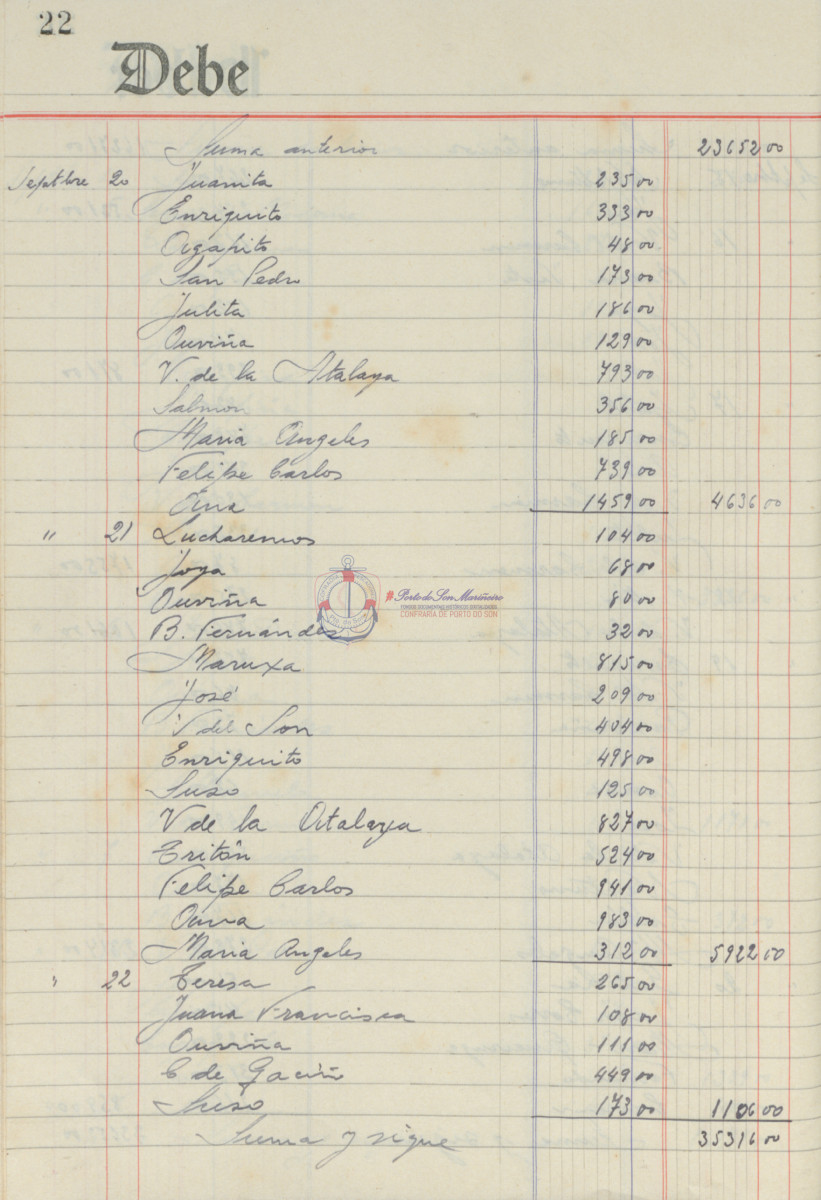 22
Debe
Suma anterior 23652 00
Septbre 20 Juanita 235 00
Enriquito 333 00
Agapito 48 00
San Pedro 173 00
Julita 186 00
Ouviña 129 00
V. de la Atalaya 793 00
Salmon 356 00
Maria Angeles 185 00
Felipe Carlos 739 00
1459 00 4636 00
" 21 Lucharemos 104 00
Joya 68 00
Ouviña 80 00
B. Fernández 32 00
Maruxa 815 00
José 209 00
V del Son 404 00
Enriquito 498 00
Suso 125 00
V de la Atalaya 827 00
Tritón 524 00
Felipe Carlos 941 00
983 00
Maria Angeles 312 00 5922 00
" 22 Teresa 265 00
Juana Francisca 108 00
Ouviña 111 00
C de Gaciñ 449 00
Suso 173 00 1106 00
Suma y sigue 35316 00
# Porto do Son Mariñeiro
FONDOS DOCUMENTAIS HISTÓRICOS DIXITALIZADOS
CONFRARÍA DE PORTO DO SON